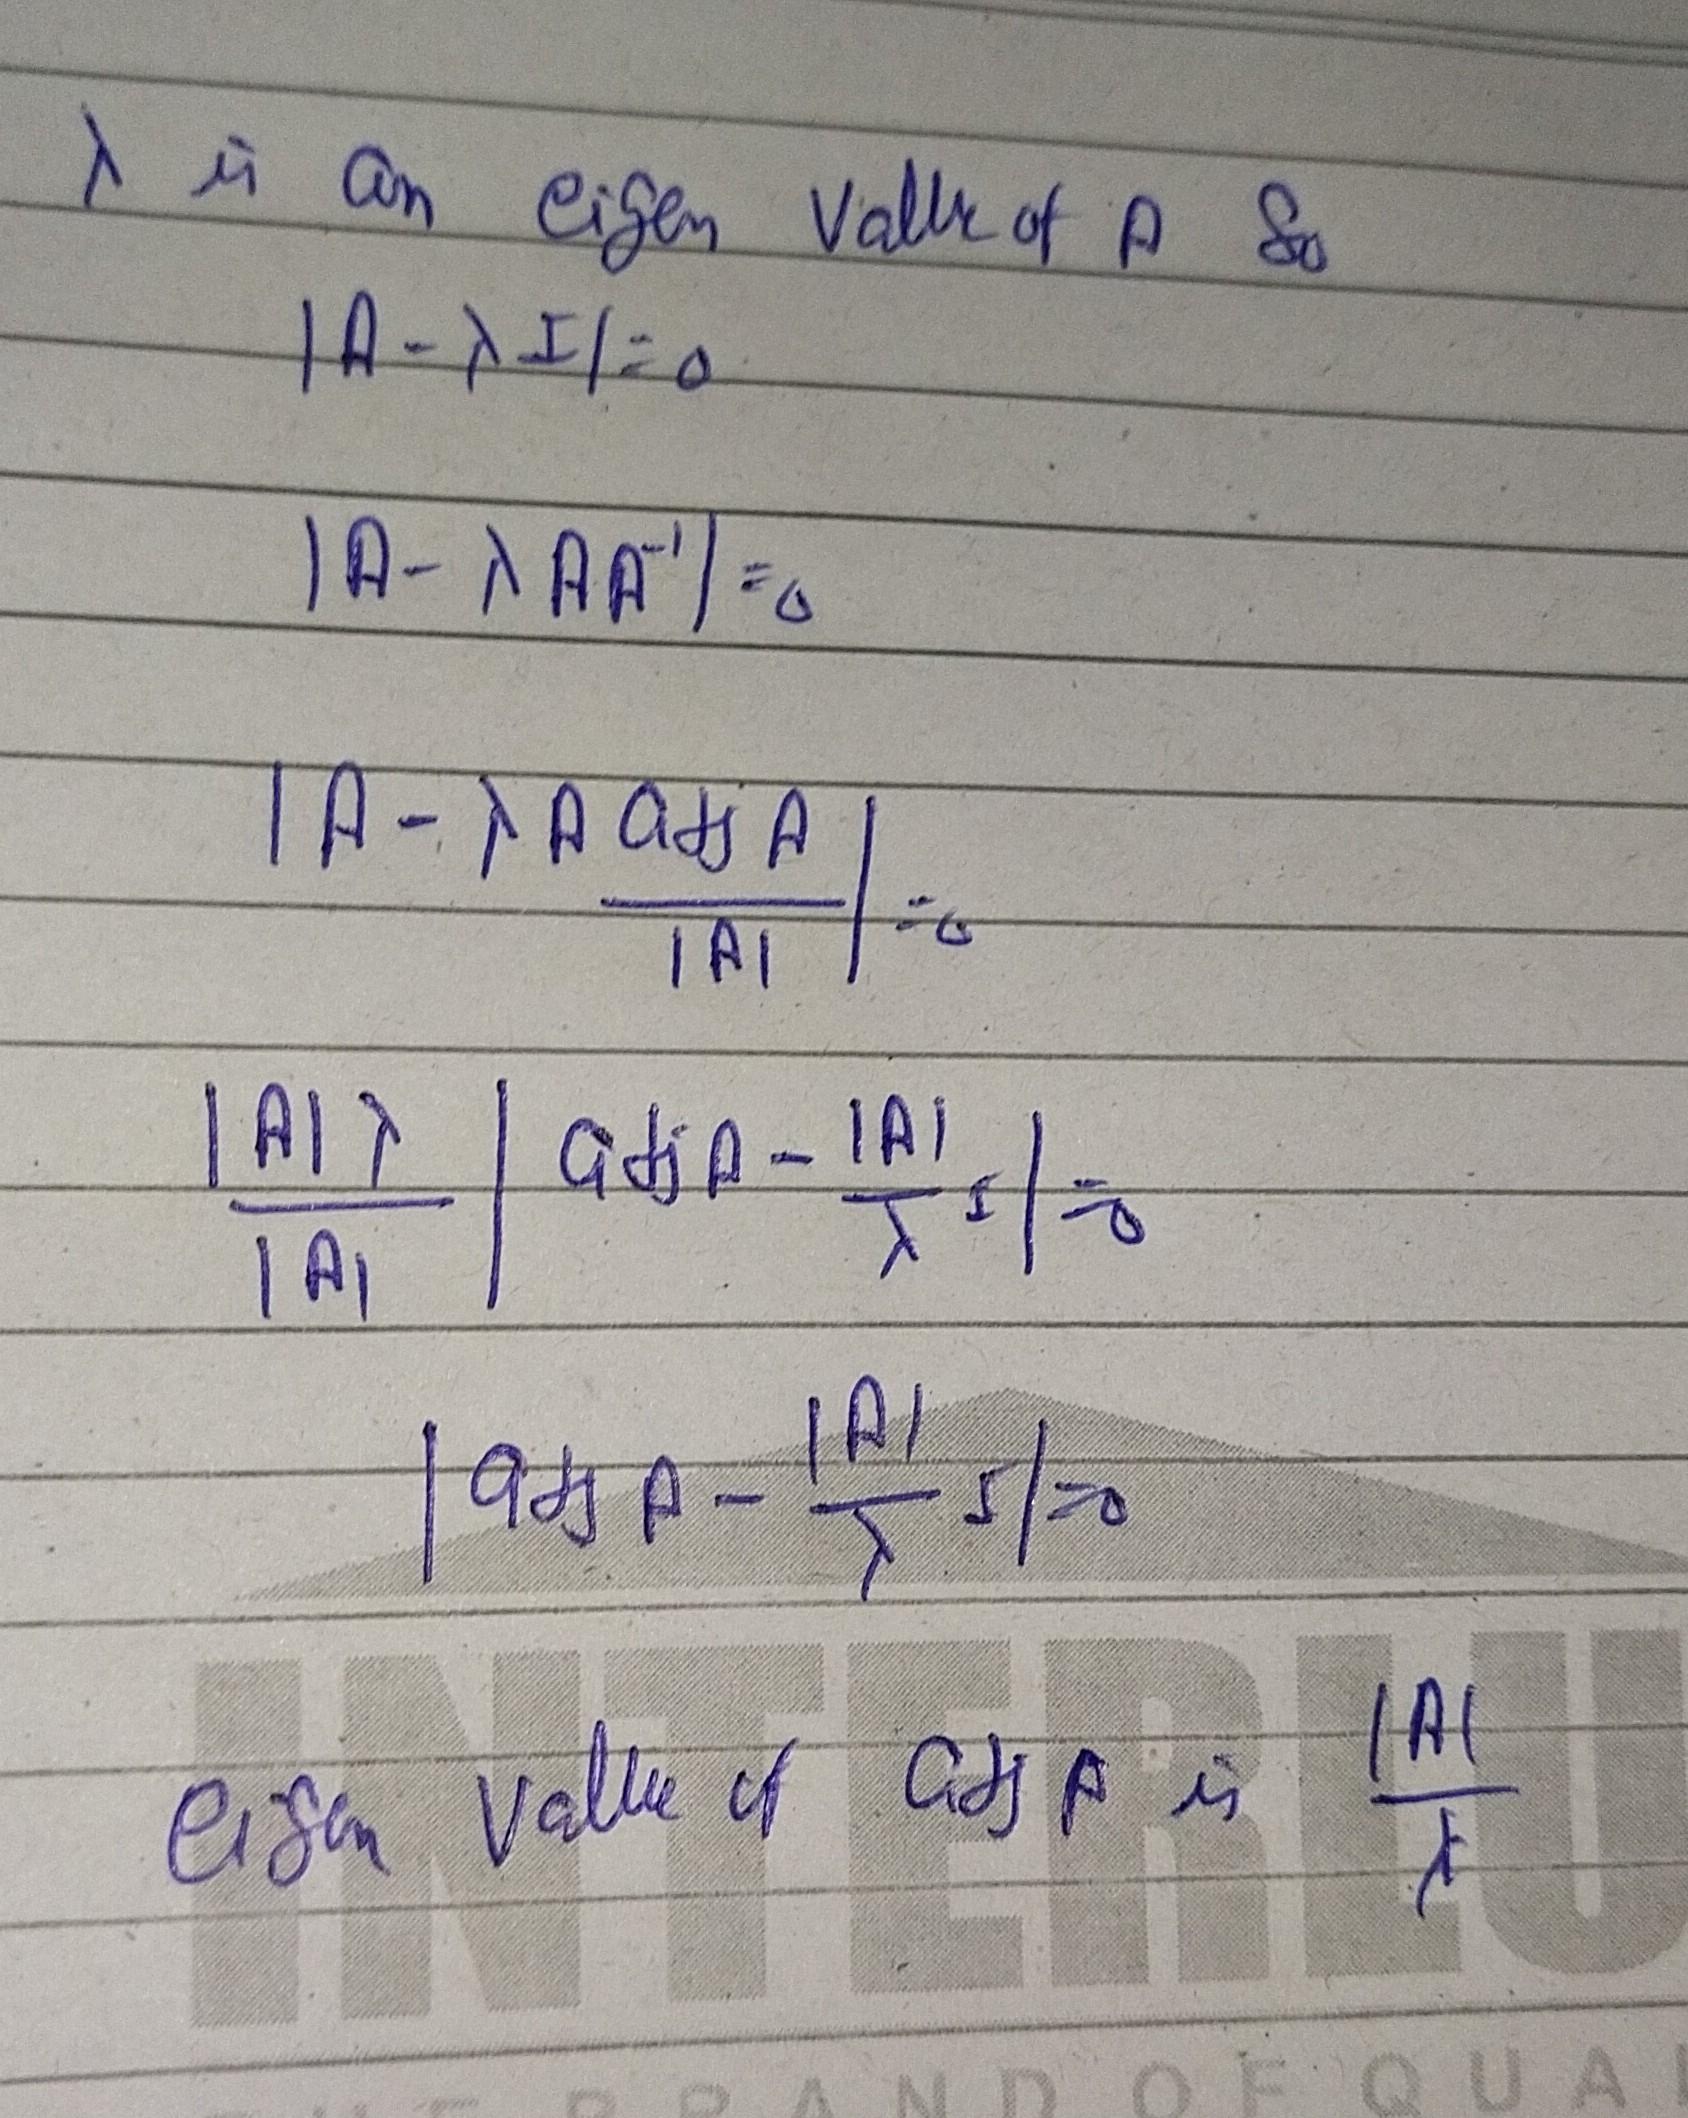 λ is an eigen value of A So
|A - λI| = 0
|A - λAA⁻¹| = 0
|A - λA adj A / |A| | = 0
|A|λ / |A| | adj A - |A|/λ I | = 0
| adj A - |A|/λ I | = 0
eigen value of adj A is |A|/λ
INTERLU
THE BRAND OF QUAL